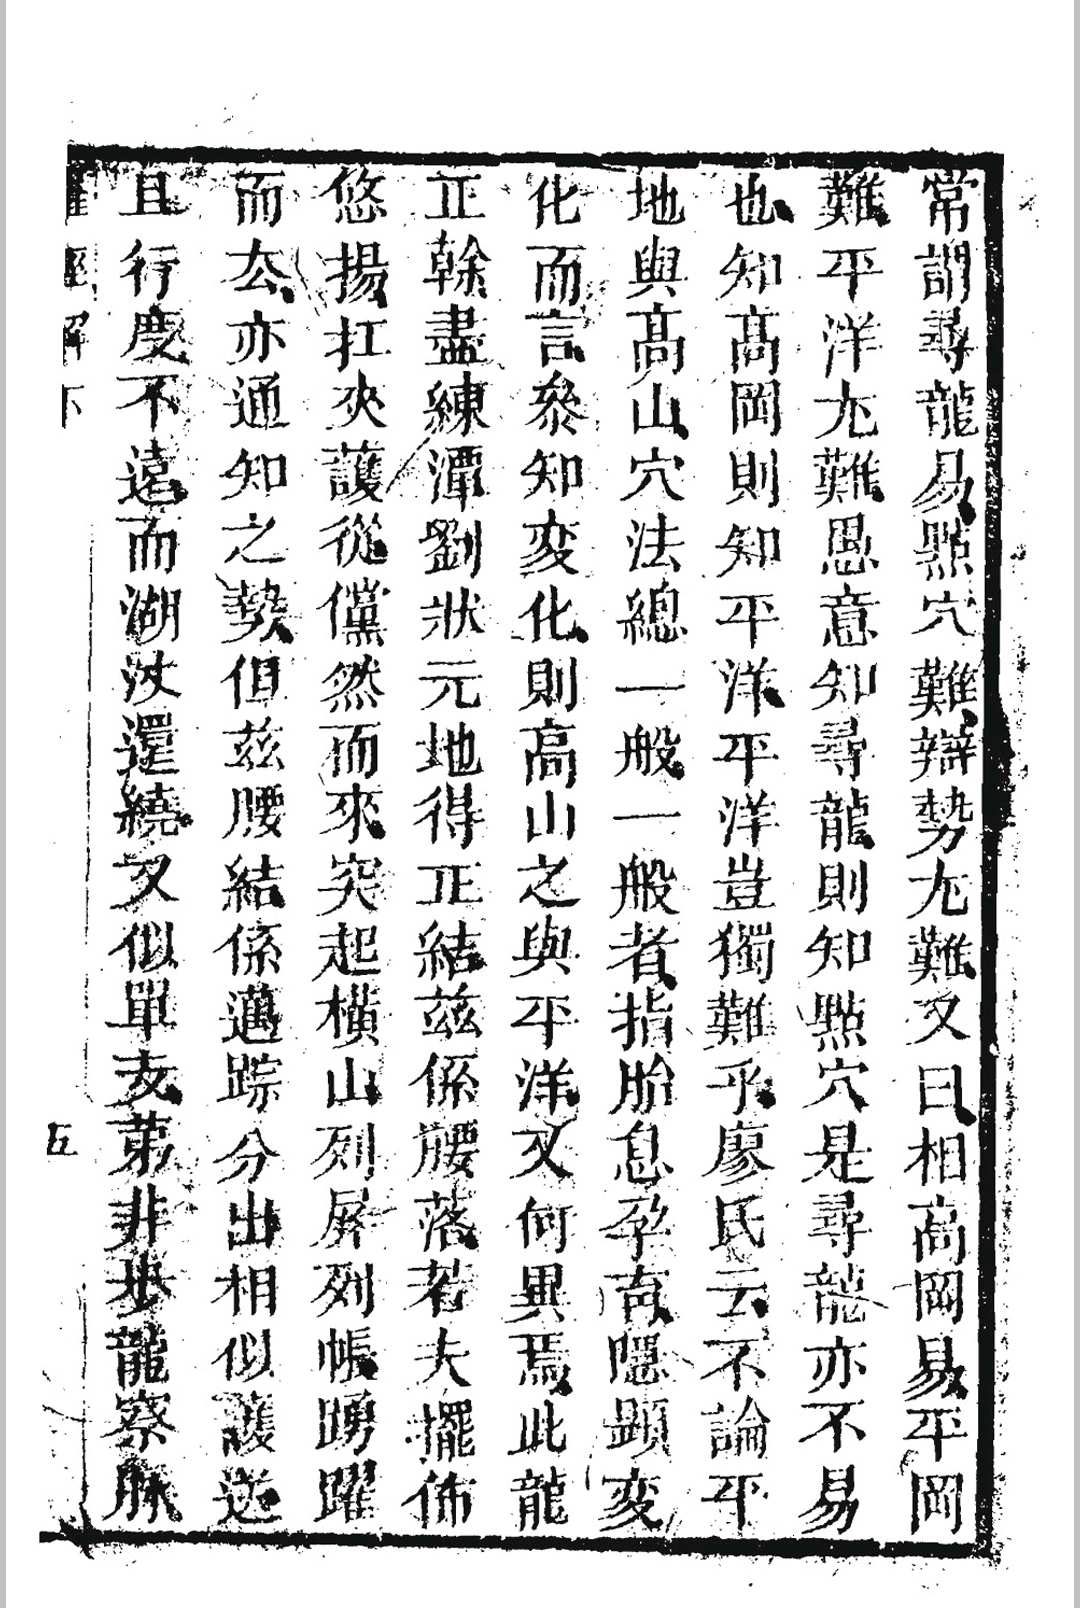 常謂尋龍易點穴難辯勢尤難又曰相高岡易平岡
難平洋尤難愚意知尋龍則知點穴是尋龍亦不易
也知高岡則知平洋平洋豈獨難乎廖氏云不論平
地與高山穴法總一般一般者指胎息孕育隱顯変
化而言叅知変化則高山之與平洋又何異焉此龍
正幹盡練潭劉狀元地得正結兹係腰落若夫擺佈
悠揚扛夾護從儻然而來突起橫山列屏列帳踴躍
而去亦通知之勢但兹腰結係邁踪分出相似護送
且行度不遠而湖汊還繞又似單支第非步龍察脉
羅經解下
五